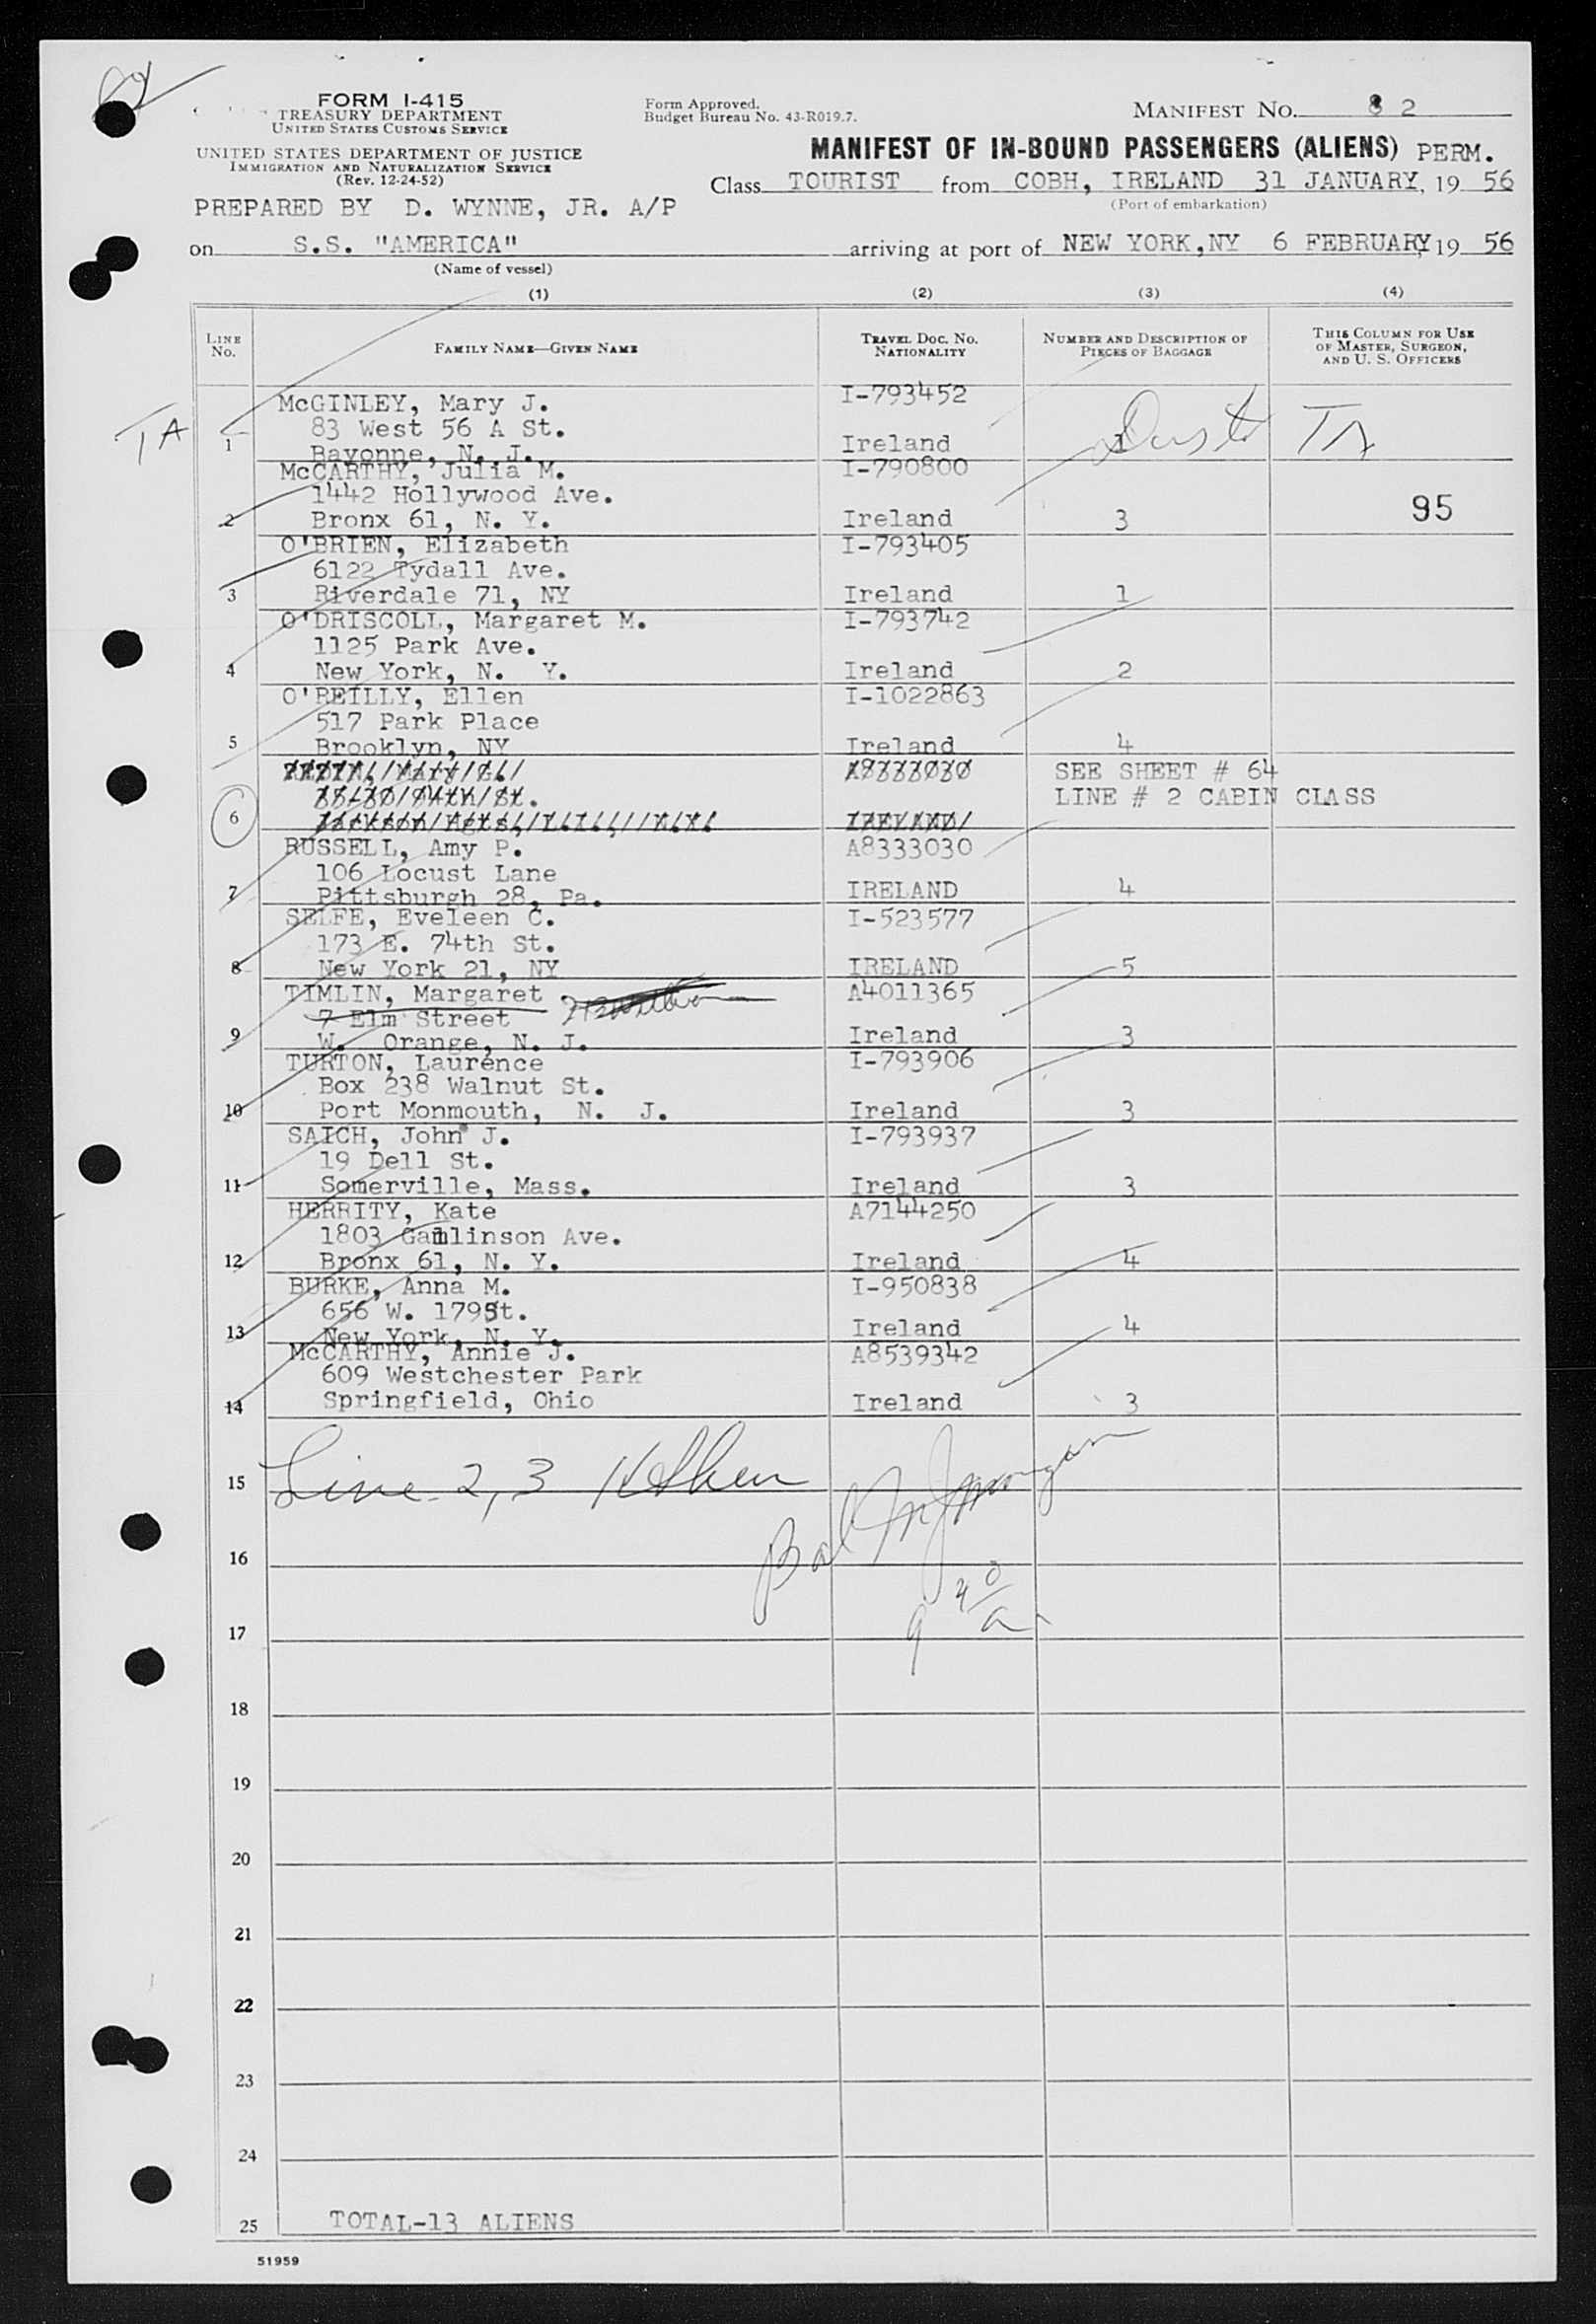 FORM I-415
TREASURY DEPARTMENT
UNITED STATES CUSTOMS SERVICE
UNITED STATES DEPARTMENT OF JUSTICE
IMMIGRATION AND NATURALIZATION SERVICE
(Rev. 12-24-52)
Form Approved.
Budget Bureau No. 43-R019.7.
MANIFEST NO. 82
MANIFEST OF IN-BOUND PASSENGERS (ALIENS) PERM.
Class TOURIST from COBH, IRELAND 31 JANUARY, 19 56
(Port of embarkation)
PREPARED BY D. WYNNE, JR. A/P
on S.S. "AMERICA" arriving at port of NEW YORK,NY 6 FEBRUARY, 19 56
(Name of vessel)
(1) (2) (3) (4)
LINE NO. FAMILY NAME—GIVEN NAME TRAVEL DOC. NO. NATIONALITY NUMBER AND DESCRIPTION OF PIECES OF BAGGAGE THIS COLUMN FOR USE OF MASTER, SURGEON, AND U. S. OFFICERS
McGINLEY, Mary J. I-793452
TA 83 West 56 A St. TA
1 Bayonne, N. J. Ireland 1
McCARTHY, Julia M. I-790800
1442 Hollywood Ave.
2 Bronx 61, N. Y. Ireland 3 95
O'BRIEN, Elizabeth I-793405
6122 Tydall Ave.
3 Riverdale 71, NY Ireland 1
O'DRISCOLL, Margaret M. I-793742
1125 Park Ave.
4 New York, N. Y. Ireland 2
O'REILLY, Ellen I-1022863
517 Park Place
5 Brooklyn, NY Ireland 4
SEE SHEET # 64
LINE # 2 CABIN CLASS
6 IRELAND
RUSSELL, Amy P. A8333030
106 Locust Lane
7 Pittsburgh 28, Pa. IRELAND 4
SELFE, Eveleen C. I-523577
173 E. 74th St.
8 New York 21, NY IRELAND 5
TIMLIN, Margaret A4011365
7 Elm Street
9 W. Orange, N. J. Ireland 3
TURTON, Laurence I-793906
Box 238 Walnut St.
10 Port Monmouth, N. J. Ireland 3
SAICH, John J. I-793937
19 Dell St.
11 Somerville, Mass. Ireland 3
HERRITY, Kate A7144250
1803 Ave.
12 Bronx 61, N. Y. Ireland 4
BURKE, Anna M. I-950838
656 W. 179St.
13 New York, N. Y. Ireland 4
McCARTHY, Annie J. A8539342
609 Westchester Park
14 Springfield, Ohio Ireland 3
15 Line 2, 3
16
17
18
19
20
21
22
23
24
25 TOTAL-13 ALIENS
51959